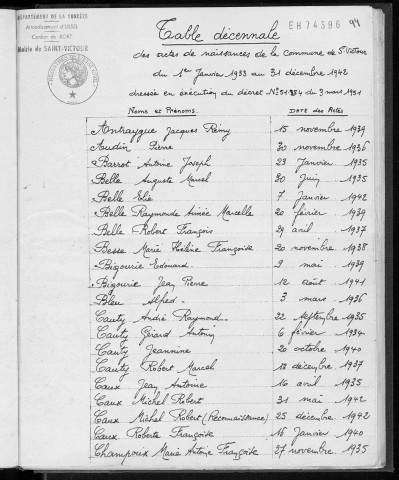 DÉPARTEMENT DE LA CORRÈZE
Arrondissement d'USSEL
Canton de BORT
Mairie de SAINT-VICTOUR
EH74396 94
Table décennale
des actes de naissances de la Commune de St Victour
du 1er Janvier 1933 au 31 décembre 1942
dressée en exécution du décret N° 51284 du 3 mars 1951
Noms et Prénoms.
Date des Actes
Antraygue Jacques Rémy 15 novembre 1939
Audin Pierre 30 novembre 1936
Barrot Antoine Joseph 23 Janvier 1935
Belle Auguste Marcel 30 Juin 1935
Belle Elie 7 Janvier 1942
Belle Raymonde Aimée Marcelle 20 février 1939
Belle Robert François 29 avril 1937
Besse Marie Hélène Françoise 20 novembre 1938
Bigourie Edouard 2 mai 1939
Bigourie Jean Pierre 12 août 1941
Bleu Alfred 3 mars 1936
Cauty André Raymond 22 septembre 1935
Cauty Gérard Antonin 6 février 1934
Cauty Jeannine 20 octobre 1940
Cauty Robert Marcel 18 décembre 1937
Caux Jean Antoine 16 avril 1935
Caux Michel Robert 31 mai 1942
Caux Michel Robert (Reconnaissance) 25 décembre 1942
Caux Roberte Françoise 16 Janvier 1940
Champoux Marie Antoine Françoise 27 novembre 1935